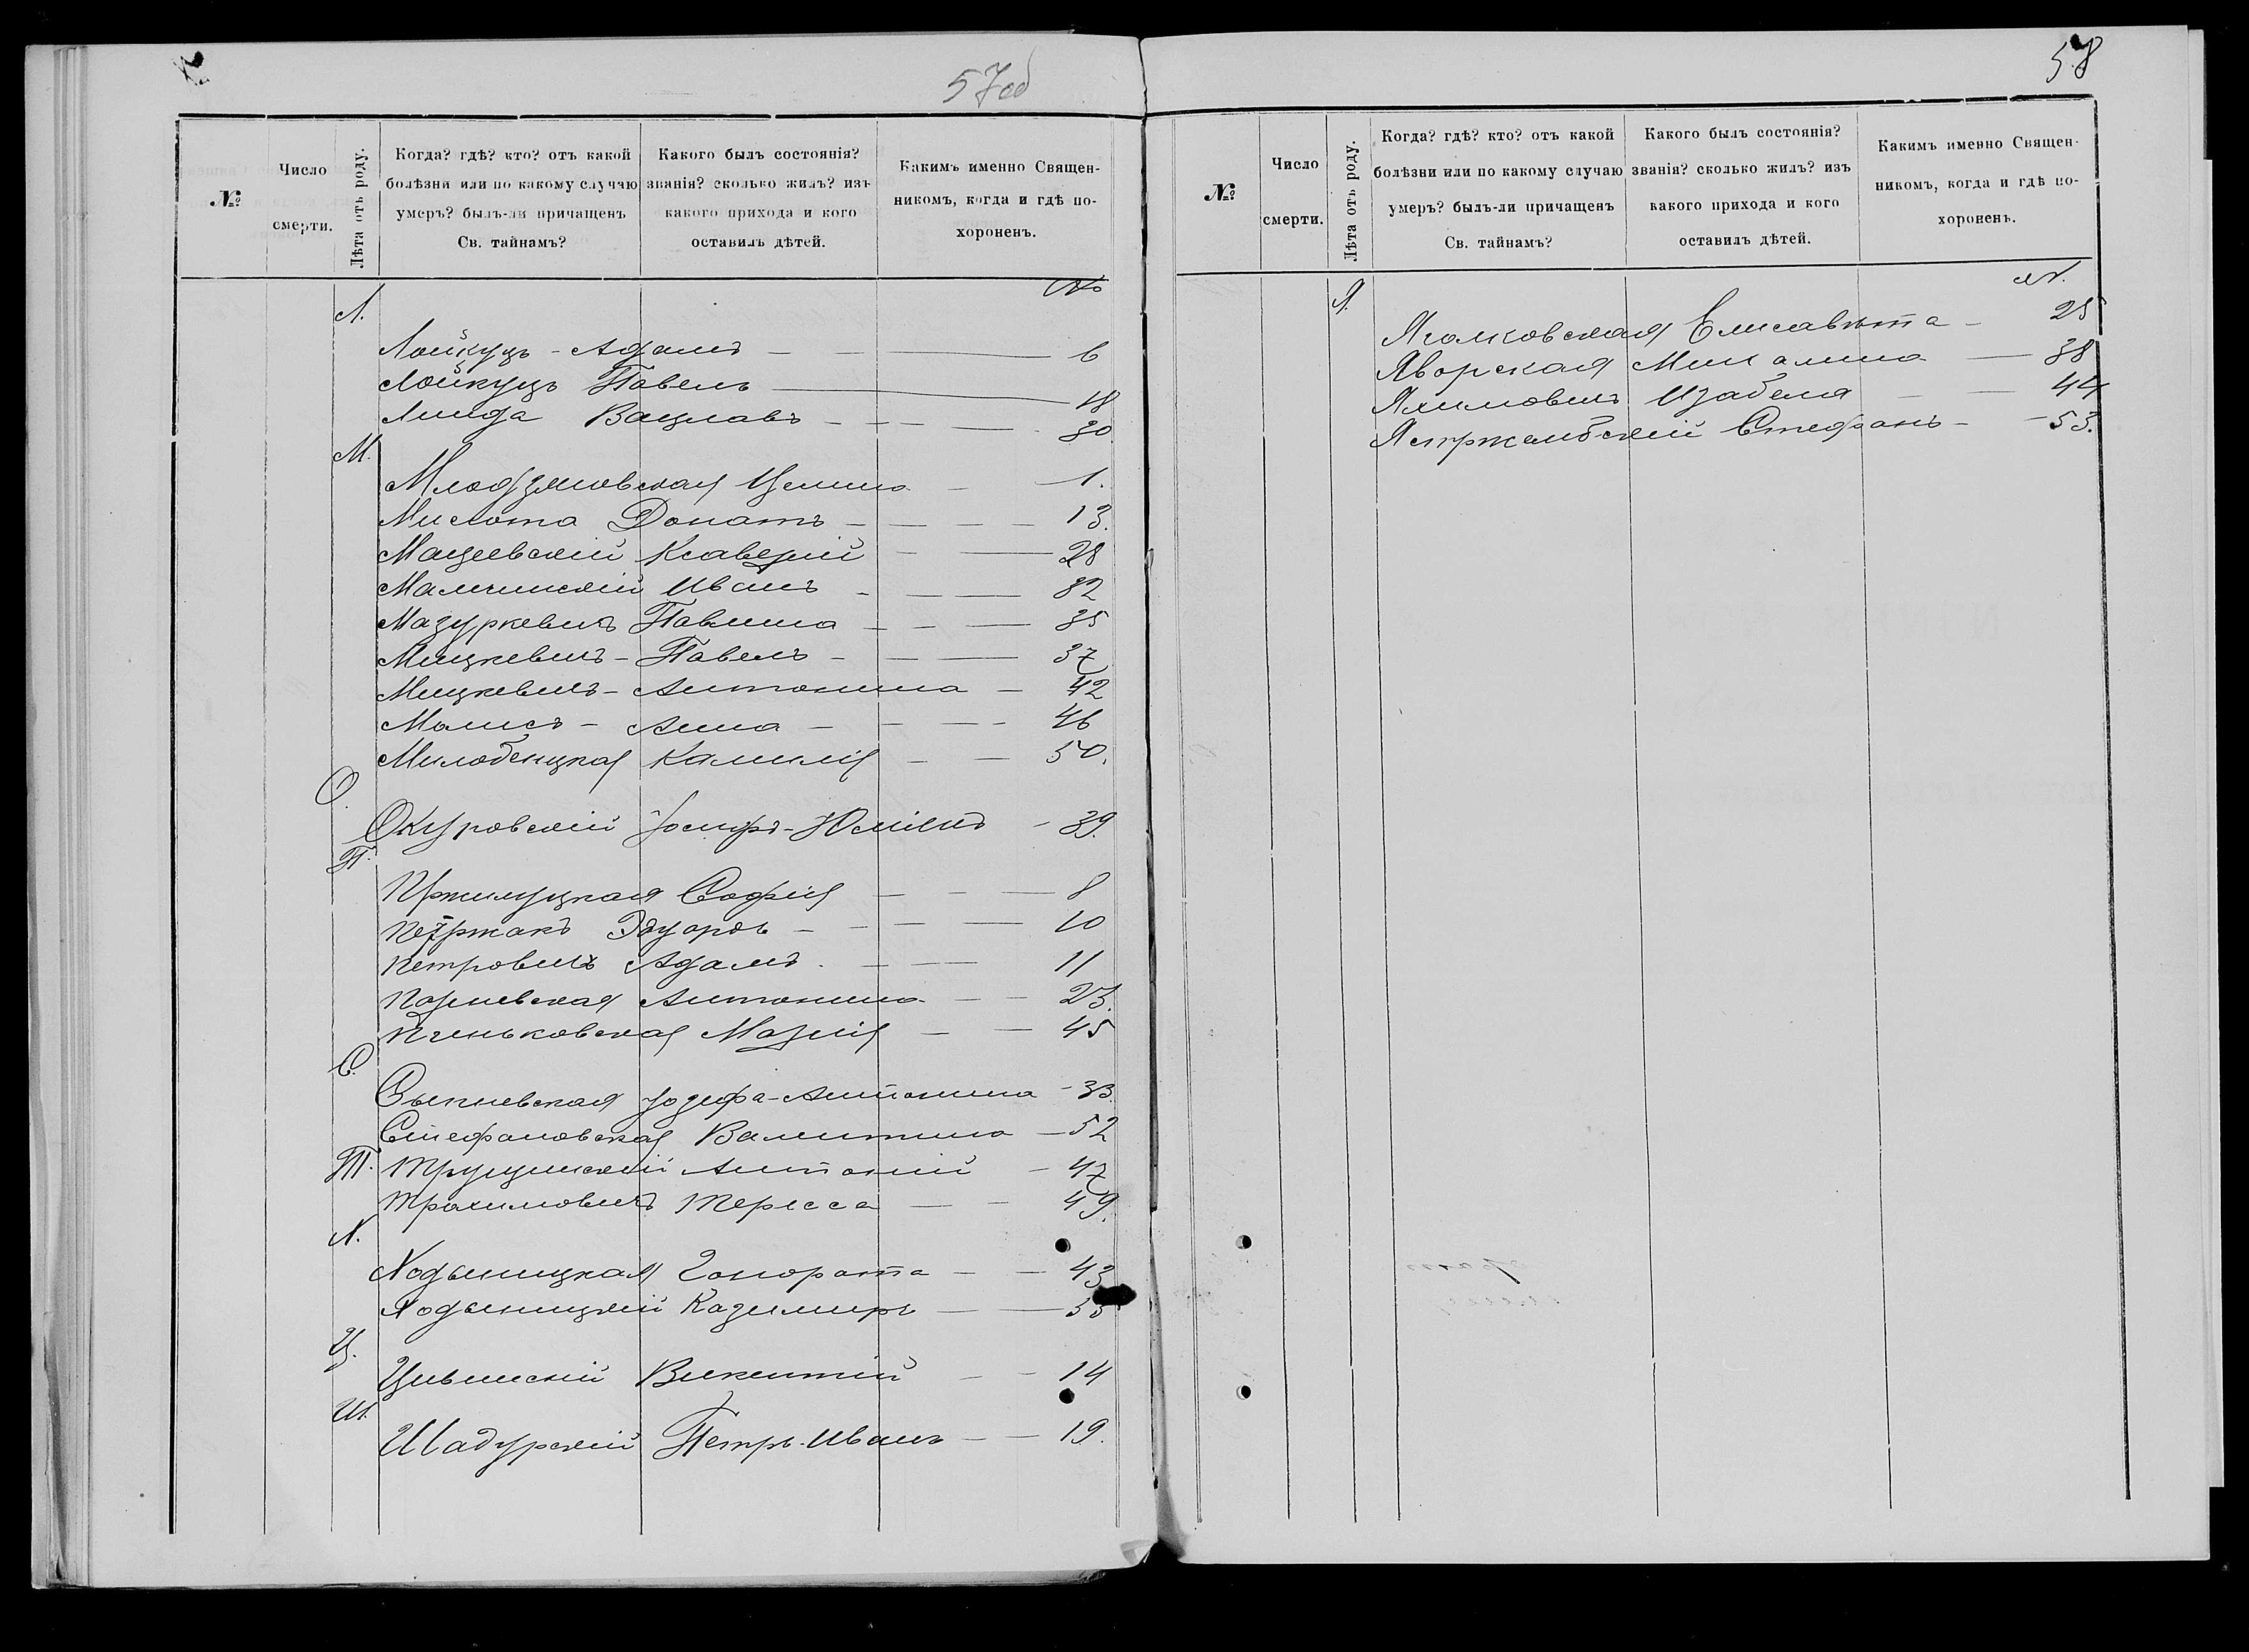 57об
№
Число смерти.
Лѣта отъ роду.
Когда? гдѣ? кто? отъ какой
болѣзни или по какому случаю
умеръ? былъ-ли причащенъ
Св. тайнамъ?
Какого былъ состоянія?
званія? сколько жилъ? изъ
какого прихода и кого
оставилъ дѣтей.
Какимъ именно Священ-
никомъ, когда и гдѣ по-
хороненъ.
№
Л.
Лойкуцъ - Адамъ - 6
Лойкуцъ Павелъ - 18
Линда Вацлавъ - 30
М.
Млодзяновская Целина - 1.
Мисюта Донатъ - 13.
Мацеевскій Ксаверій - 28
Малчинскій Иванъ - 32
Мазуркевичъ Павлина - 35
Мицкевичъ - Павелъ - 37
Мицкевичъ - Антонина - 42
Малисъ - Анна - 46
Милобендзкая Камилія - 50.
О.
Окуровскій Іосифъ-Юліанъ - 39.
П.
Пржилуцкая Софія - 8
Петржакъ Эдуардъ - 10
Петровичъ Адамъ - 11
Антонина - 23.
Пченьковская Марія - 45
С.
Іозефа-Антонина - 33.
Стефановская Валентина - 52
Т. Антоній - 47
Трахимовичъ Тересса - 49.
Х.
Ходыницкая Гонората - 43
Ходыницкій Казимиръ - 55
Ц.
Цивинскій Викентій - 14
Ш.
Шадурскій Петръ-Иванъ - 19.
58
№
Число смерти.
Лѣта отъ роду.
Когда? гдѣ? кто? отъ какой
болѣзни или по какому случаю
умеръ? былъ-ли причащенъ
Св. тайнамъ?
Какого былъ состоянія?
званія? сколько жилъ? изъ
какого прихода и кого
оставилъ дѣтей.
Какимъ именно Священ-
никомъ, когда и гдѣ по-
хороненъ.
№.
Я.
Ягалковская Елисавѣта - 25
Яворская Михалина - 38
Яхимовичъ Изабела - 44
Ястржембскій Стефанъ - 53.